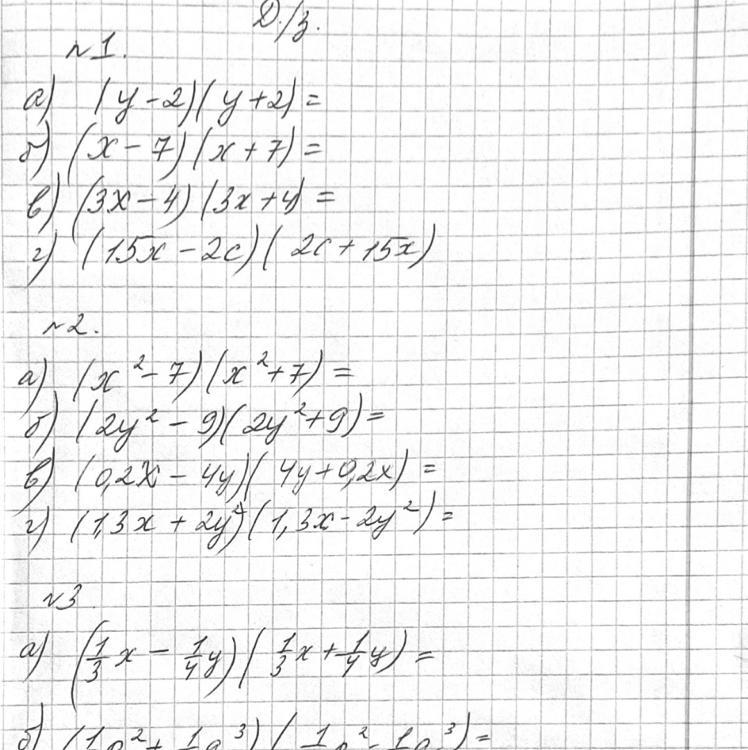 Д/з.
№1.
а) (y-2)(y+2)=
б) (x-7)(x+7)=
в) (3x-4)(3x+4)=
г) (15x-2c)(2c+15x)
№2.
а) (x²-7)(x²+7)=
б) (2y²-9)(2y²+9)=
в) (0,2x-4y)(4y+0,2x)=
г) (1,3x+2y²)(1,3x-2y²)=
№3
а) (1/3x-1/4y)(1/3x+1/4y)=
б)